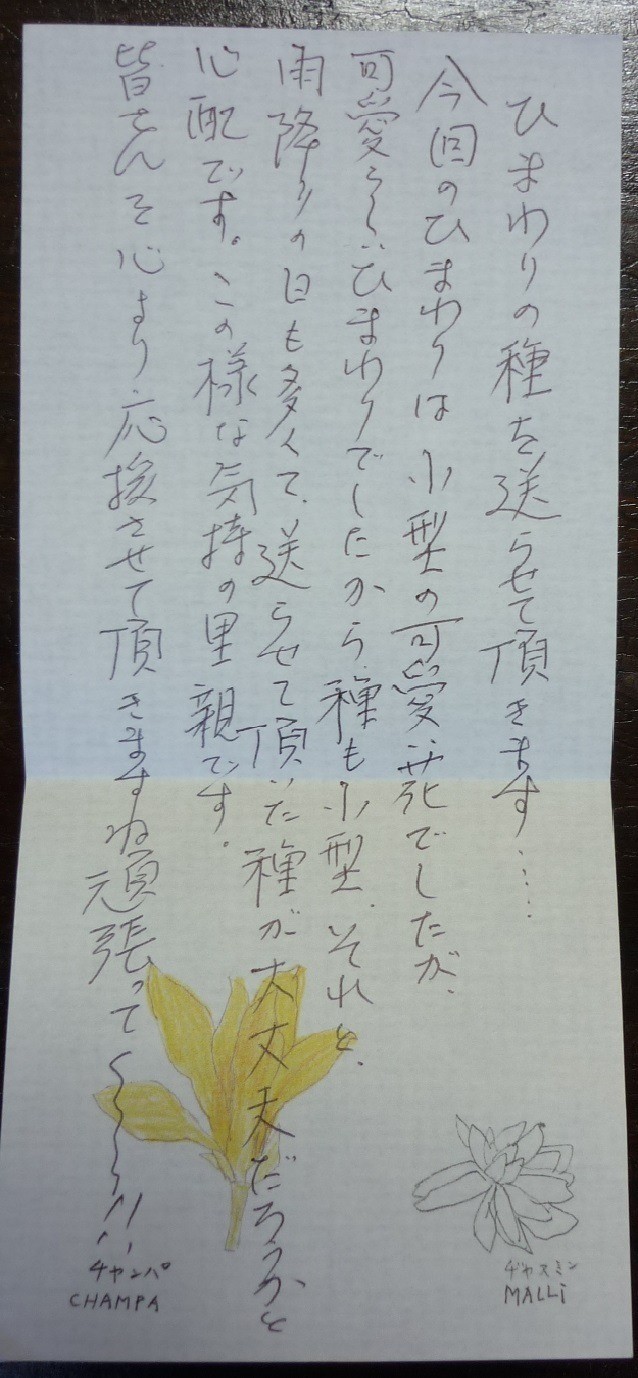 ひまわりの種を送らせて頂きます‥‥
今回のひまわりは小型の可愛い花でしたが、
可愛らしいひまわりでしたから種も小型、それと、
雨降りの日も多くて、送らせて頂いた種が大丈夫だろうかと
心配です。この様な気持の里親です。
皆さんを心より応援させて頂きますね頑張って〜〜〜!!
チャンパ
CHAMPA
ヂャスミン
MALLi